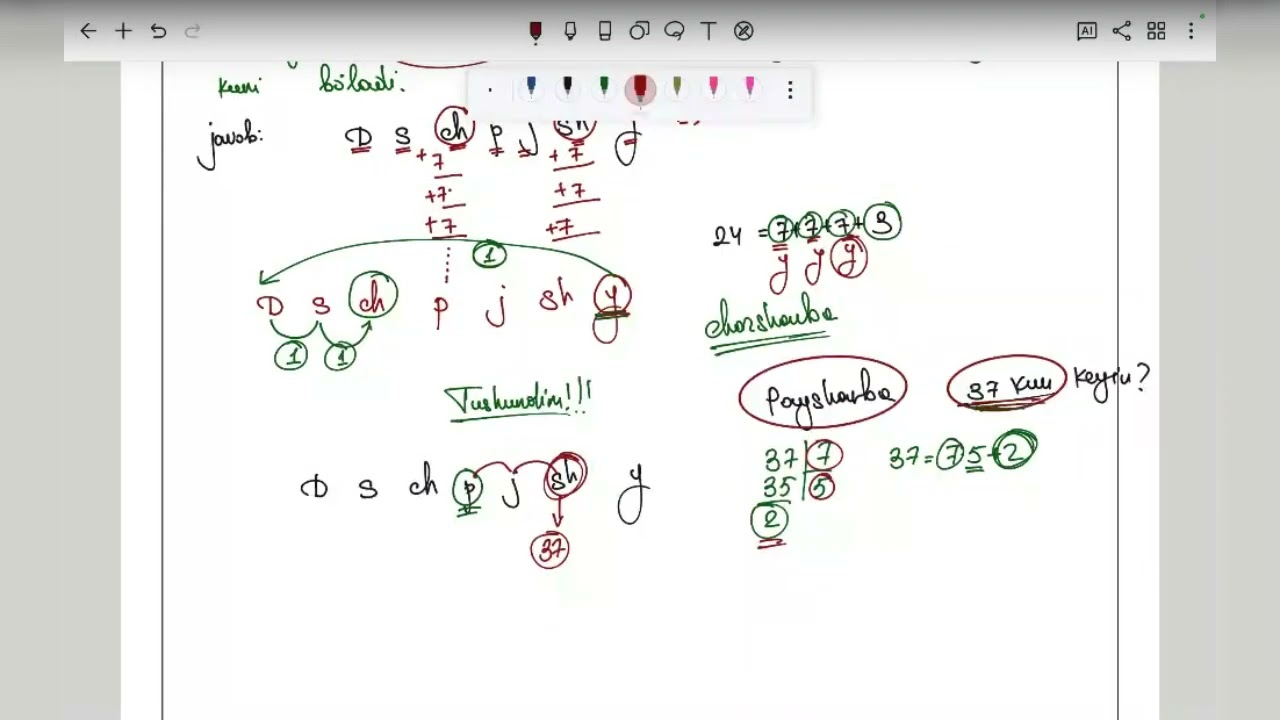 AI
kuni bo'ladi.
javob: D S ch p j sh y
+7 +7
+7 +7
+7 +7
24 = 7+7+7+3
y y y
1
D S ch p j sh y
1 1
chorshanba
Tushundim!!!
Payshanba 37 kun keyin?
37 7
35 5
2
37=7 5+2
D S ch p j sh y
37